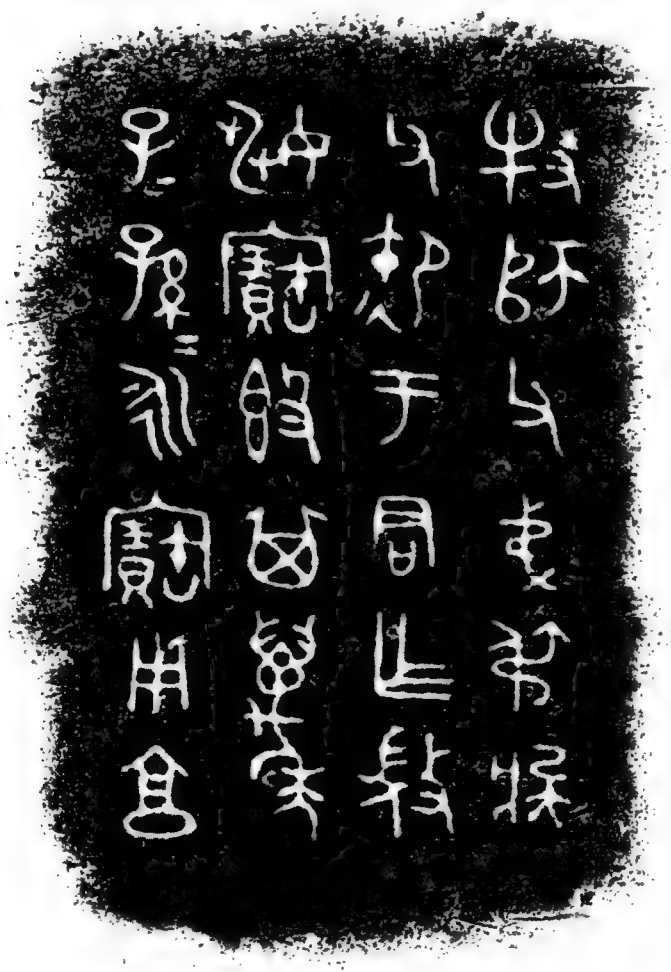 牧師父弟叔
父御于君乍𢼸
姚寶𣪘其萬年
子=孫=永寶用亯